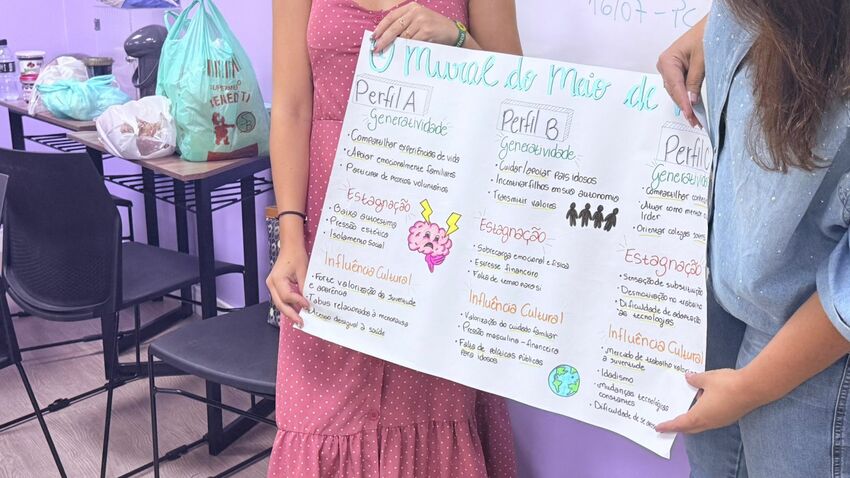 16/07 -
O Mural do Meio de
Perfil A
Generatividade
• Compartilhar experiências de vida
• Apoiar emocionalmente familiares
• Participar de projetos voluntários
Estagnação
• Baixa autoestima
• Pressão estética
• Isolamento social
Influência Cultural
• Forte valorização da juventude
e aparência
• Tabus relacionados à menopausa
• Acesso desigual à saúde
Perfil B
Generatividade
• Cuidar/apoiar pais idosos
• Incentivar filhos em sua autonomia
• Transmitir valores
Estagnação
• Sobrecarga emocional e física
• Estresse financeiro
• Falta de tempo para si
Influência Cultural
• Valorização do cuidado familiar
• Pressão masculina - financeira
• Falta de políticas públicas
para idosos
Perfil C
• Compartilhar
• Atuar como mentor
líder
• Orientar colegas
Estagnação
• Sensação de substituição
• Desmotivação no trabalho
• Dificuldade de adaptação
às tecnologias
Influência Cultural
• Mercado de trabalho valoriza
a juventude
• Idadismo
• Mudanças tecnológicas
constantes
• Dificuldade de se